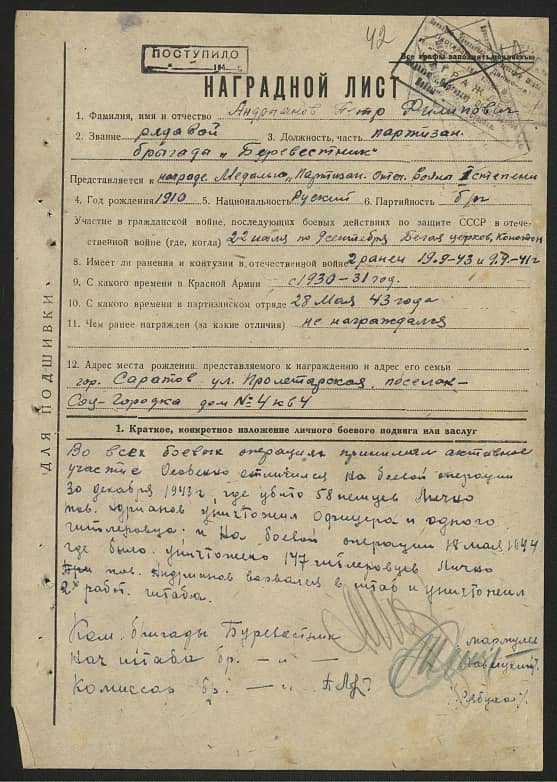 42
ПОСТУПИЛО
Все графы заполнять полностью
НАГРАДНОЙ ЛИСТ
1. Фамилия, имя и отчество Андрианов Петр Филипович
2. Звание рядавой 3. Должность, часть партизан.
бригада „Буревестник"
Представляется к награде. Медалью „Партизан. Отеч. Война II степени
4. Год рождения 1910 5. Национальность Руский 6. Партийность б/п
Участие в гражданской войне, последующих боевых действиях по защите СССР в отече-
ственной войне (где, когда) 22 июля по 9 сентября Белая церков, Конотоп
8. Имеет ли ранения и контузии в отечественной войне 2 ранен 19.9-43 и 9.9-41 г
9. С какого времени в Красной Армии с 1930-31 год.
10. С какого времени в партизанском отряде 28 Мая 43 года
11. Чем ранее награжден (за какие отличия) не награждался
12. Адрес места рождения, представляемого к награждению и адрес его семьи
гор. Саратов ул. Пролетарская, поселок-
Соц-Городка дом № 4 кв 4
ДЛЯ ПОДШИВКИ
1. Краткое, конкретное изложение личного боевого подвига или заслуг
Во всех боевых операциях принимал активное
участие Особенно отличился на боевой операции
30 декабря 1943 г, где убито 58 немцев Лично
тов. Адрианов уничтожил Офицера и одного
гитлеровца. и На боевой операции 18 мая 1944
где было уничтожено 147 гитлеровцев Лично
тов. Андрианов ворвался в штаб и уничтожил
2х работ. штаба.
Ком. бригады Буревестник
Нач штаба бр. — " —
Комиссар бр. — " —